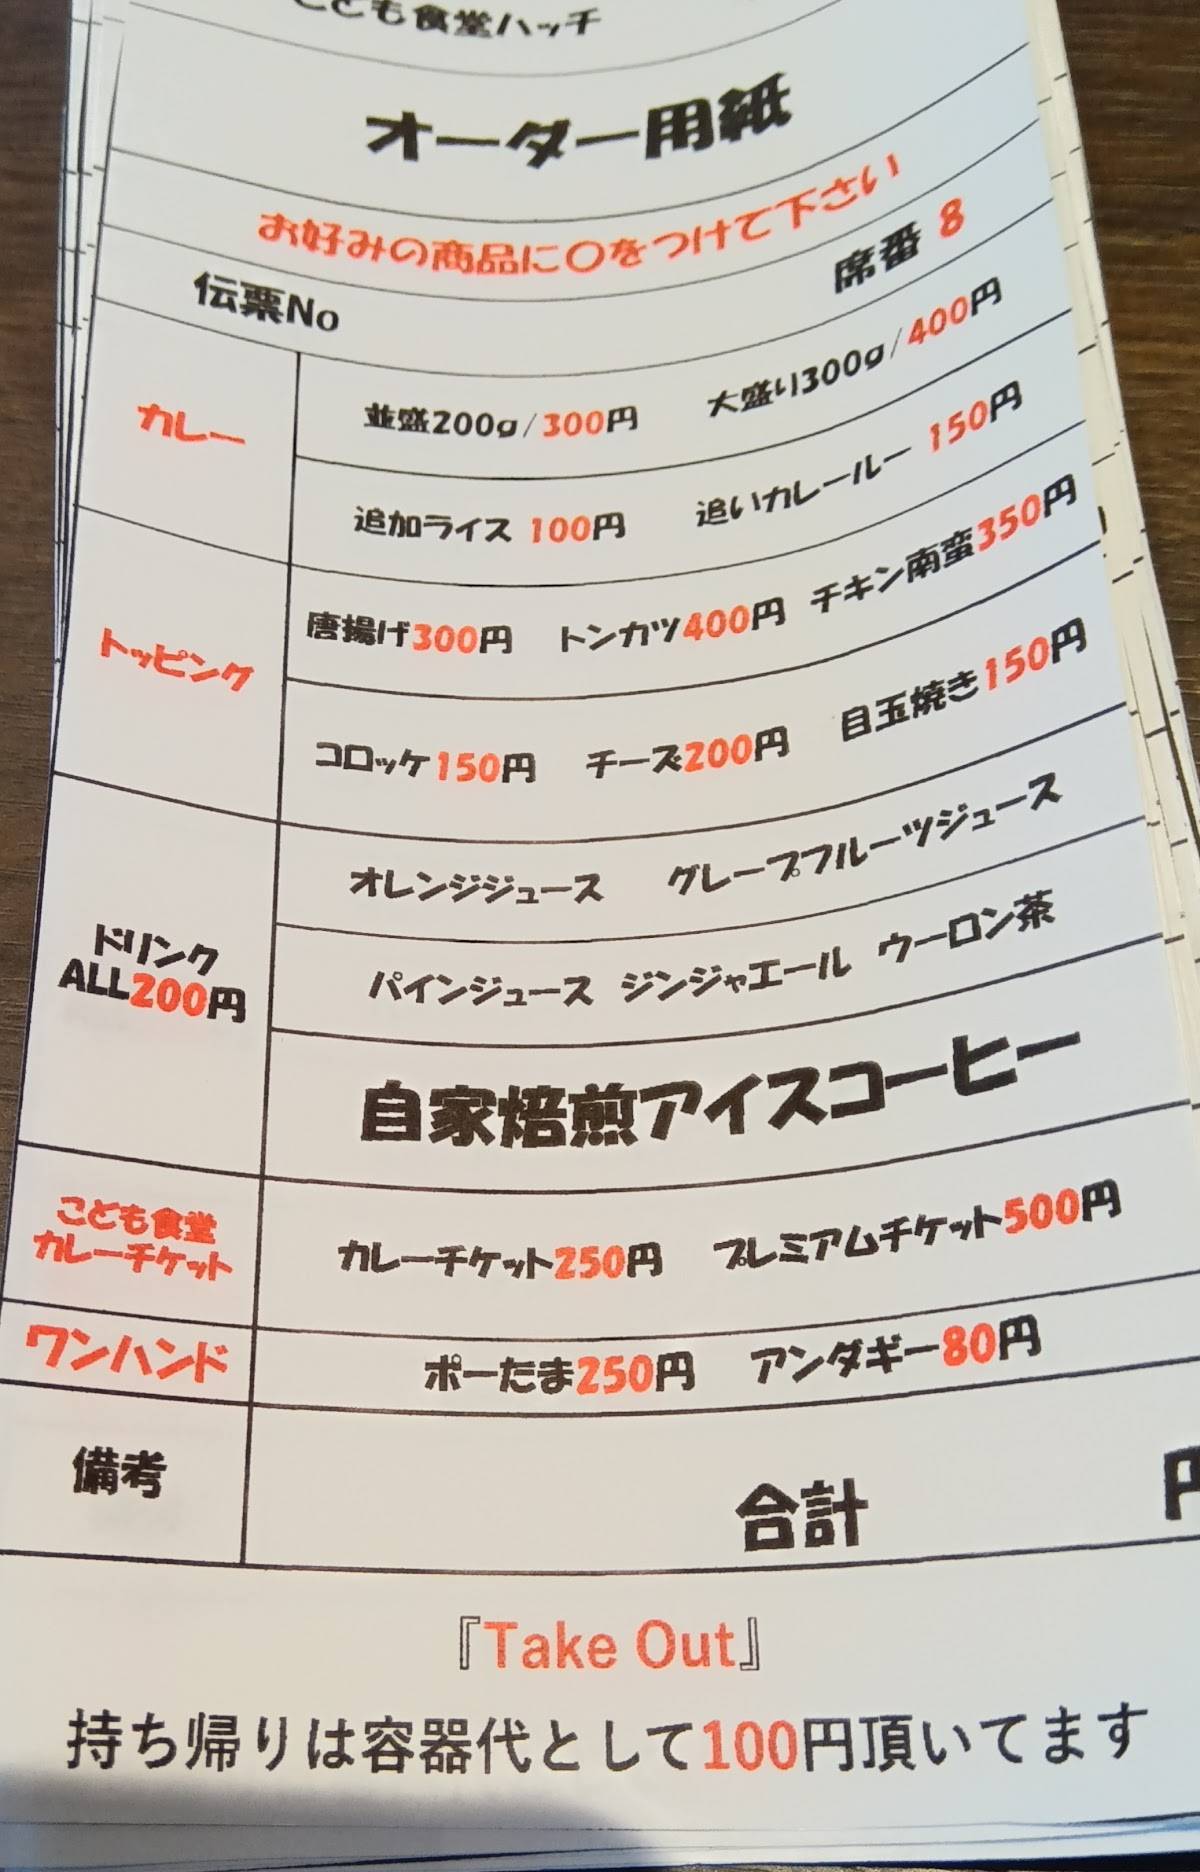 こども食堂ハッチ
オーダー用紙
お好みの商品に〇をつけて下さい
伝票No 席番 8
カレー
並盛200g/300円 大盛り300g/400円
追加ライス 100円 追いカレールー 150円
トッピング
唐揚げ300円 トンカツ400円 チキン南蛮350円
コロッケ150円 チーズ200円 目玉焼き150円
ドリンク
ALL200円
オレンジジュース グレープフルーツジュース
パインジュース ジンジャエール ウーロン茶
自家焙煎アイスコーヒー
こども食堂
カレーチケット
カレーチケット250円 プレミアムチケット500円
ワンハンド
ポーたま250円 アンダギー80円
備考
合計 円
『Take Out』
持ち帰りは容器代として100円頂いてます